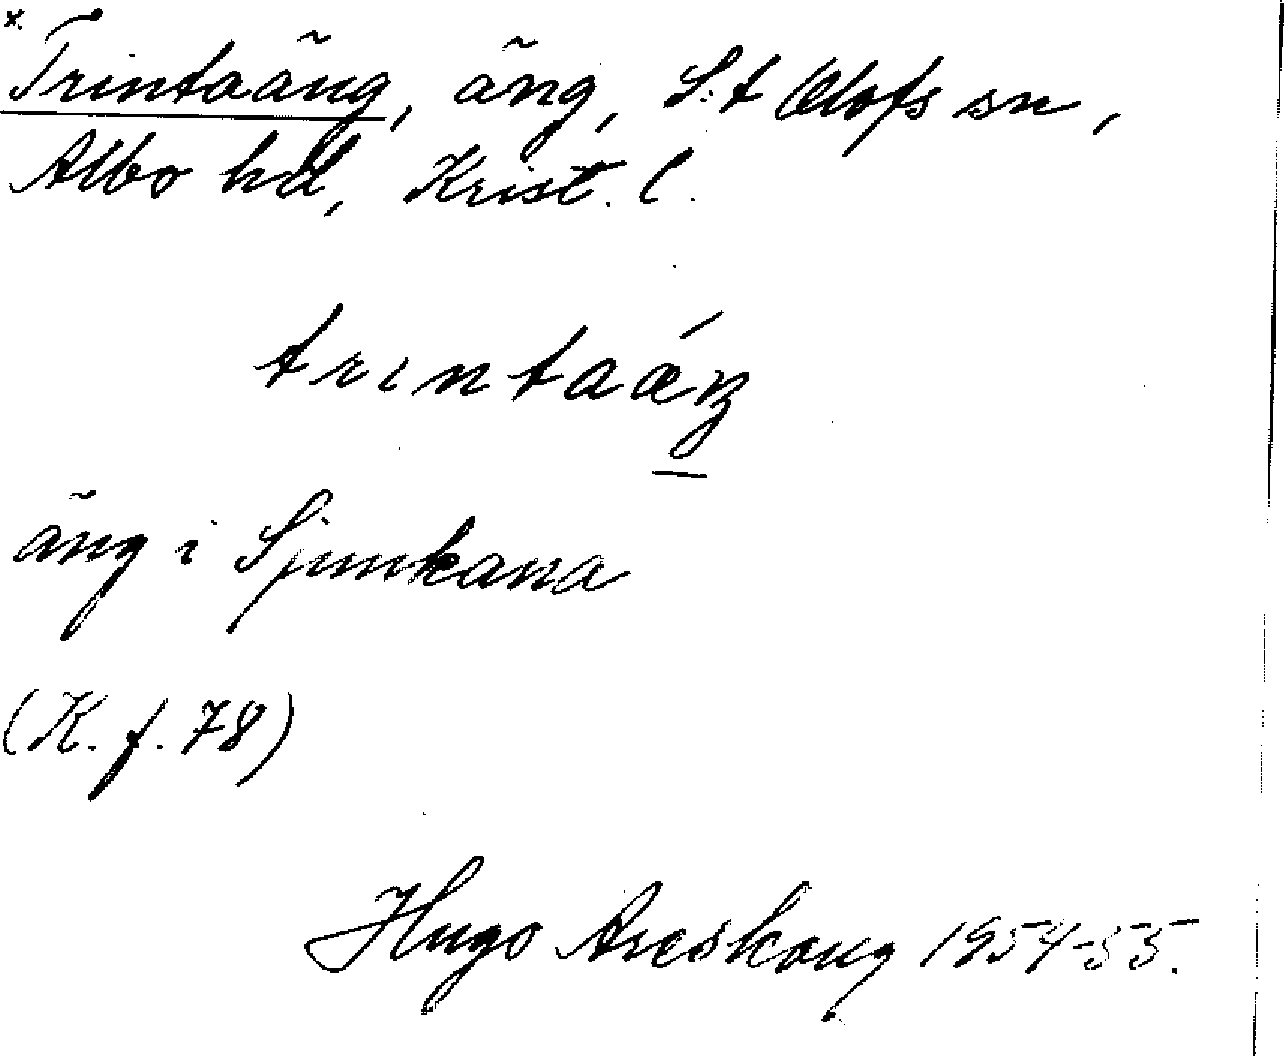 *Trintaäng, äng, S:t Olofs sn,
Albo hd, Krist. l.
trıntaǽŋ
äng i Sjunkana
(K. f. 78)
Hugo Areskoug 1954-55.